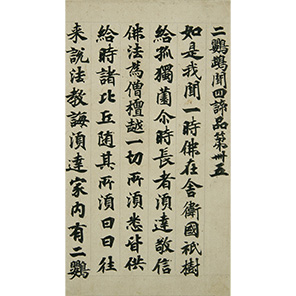 二鸚鵡聞四諦品第卅五
如是我聞一時佛在舍衛國祇樹
給孤獨薗尒時長者須達敬信
佛法為僧檀越一切所須悉皆供
給時諸比丘随其所須日日往
来說法教誨須達家内有二鸚